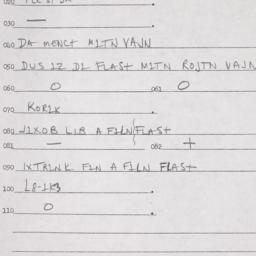 030 —
040 DA MENCT MITN VAJN
050 DUS IZ DI FLAST MITN ROJTN VAJN
060 O 061 O
070 KORIK
080 JIXOB LIB A FILN FLAST
081 — 082 +
090 IXTRINK FIN A FILN FLAST
100 L8-1K3
110 O